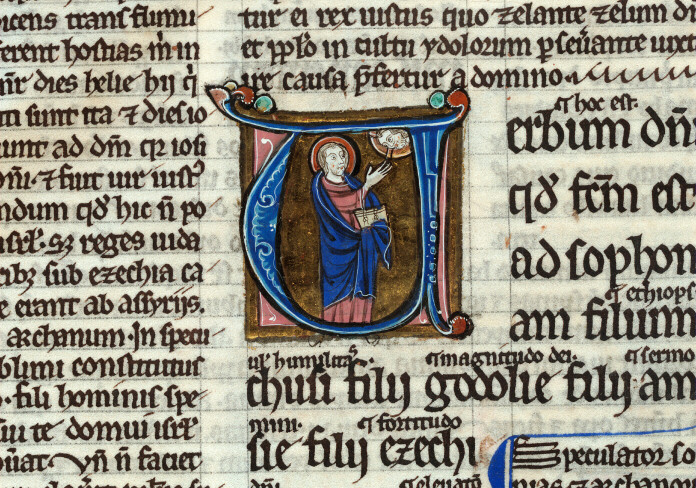 dicens transsumi
ferent hostias in
dies helie hij qi
sunt ita ⁊ diesio
runt ad dn̄m qr iosi
dn̄i ⁊ fiat uir iust
ndum qd̄ hic n̄ po
isrl̄ sꝫ reges iuda
cibꝫ sub ezechia ca
e erant ab assyrijs.
archanum. In specu
blimi constitutus
fili hominis spe
te domui isrl̄
n̄ faciet
tur ei rex iustus quo zelante zelum di
et pp̄lo in cultu ydolorum perseuerante iuxt
causa p̄fertur a domino.
hoc est.
erbum dn̄i
qd̄ fcm̄ est
ad sophon
ethiops
am filium
ul humilitas magnitudo dei. sermo
chusi filij godolie filij am
fortitudo
sie filij ezechi
Speculator so
dn̄i
nias archanor